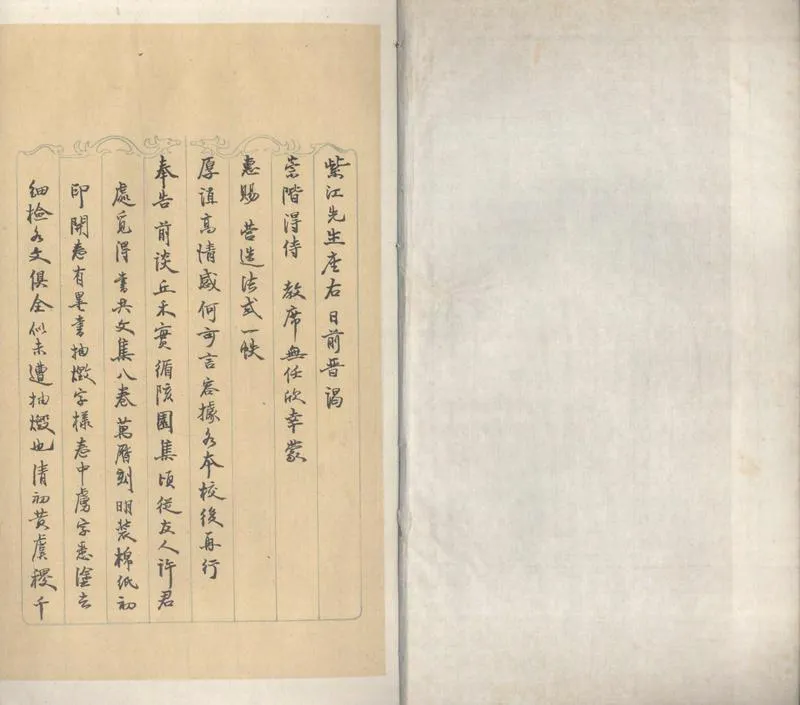 紫江先生座右日前晋謁
崇階得侍 教席無任欣幸蒙
惠賜 营造法式一帙
厚誼高情感何可言容據各本校後再行
奉告前談丘禾實循陔園集頃從友人許君
處覓得書共文集八卷萬曆刻明裝棉紙初
印開卷有墨書抽燬字樣卷中虜字悉塗去
細檢各文俱全似未遭抽燬也清初黄虞稷千